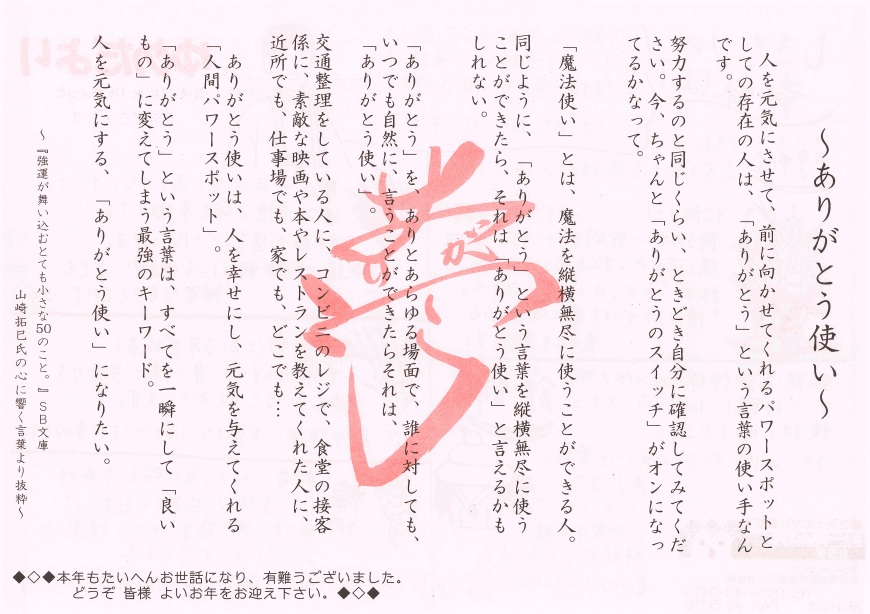 ～ありがとう使い～
人を元気にさせて、前に向かせてくれるパワースポットと
しての存在の人は、「ありがとう」という言葉の使い手なん
です。
努力するのと同じくらい、ときどき自分に確認してみてくだ
さい。今、ちゃんと「ありがとうのスイッチ」がオンになっ
てるかなって。
「魔法使い」とは、魔法を縦横無尽に使うことができる人。
同じように、「ありがとう」という言葉を縦横無尽に使う
ことができたら、それは「ありがとう使い」と言えるかも
しれない。
「ありがとう」を、ありとあらゆる場面で、誰に対しても、
いつでも自然に、言うことができたらそれは、
「ありがとう使い」。
交通整理をしている人に、コンビニのレジで、食堂の接客
係に、素敵な映画や本やレストランを教えてくれた人に、
近所でも、仕事場でも、家でも、どこでも…
ありがとう使いは、人を幸せにし、元気を与えてくれる
「人間パワースポット」。
「ありがとう」という言葉は、すべてを一瞬にして「良い
もの」に変えてしまう最強のキーワード。
人を元気にする、「ありがとう使い」になりたい。
～『強運が舞い込むとても小さな50のこと。』ＳＢ文庫
山崎拓巳氏の心に響く言葉より抜粋～
◆◇◆本年もたいへんお世話になり、有難うございました。
どうぞ 皆様 よいお年をお迎え下さい。◆◇◆